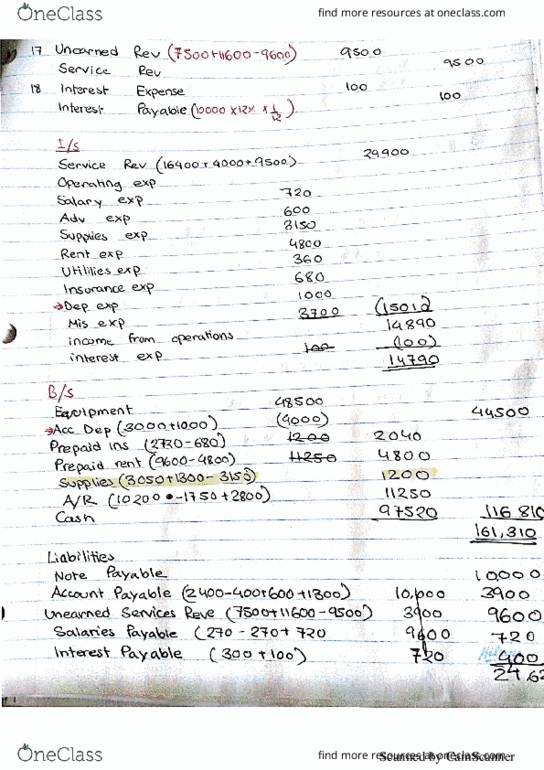 OneClass
find more resources at oneclass.com
17 Unearned Rev (7500+11600-9600) 9500
Service Rev 9500
18 Interest Expense 100
Interest Payable (10000 x 12% x 1/12) 100
I/s
Service Rev (16400+4000+9500) 29900
Operating exp
Salary exp 720
Adv exp 600
Supplies exp 3150
Rent exp 4800
Utilities exp 360
Insurance exp 680
→Dep exp 1000
Mis exp 3700 (15012)
income from operations 14890
interest exp 100 (100)
14790
B/s
Equipment 48500
→Acc Dep (3000+1000) (4000) 44500
Prepaid ins (2730-680) 1200 2040
Prepaid rent (9600-4800) 11250 4800
Supplies (3050+1300-3150) 1200
A/R (10200-1750+2800) 11250
Cash 97520 116810
161,310
Liabilities
Note Payable 10,000
Account Payable (2400-400+600+1300) 10,000 3900
Unearned Services Reve (7500+11600-9500) 3900 9600
Salaries Payable (270-270+720 9600 720
Interest Payable (300+100) 720 400
24,62
OneClass
find more resources at oneclass.com
Scanned by CamScanner